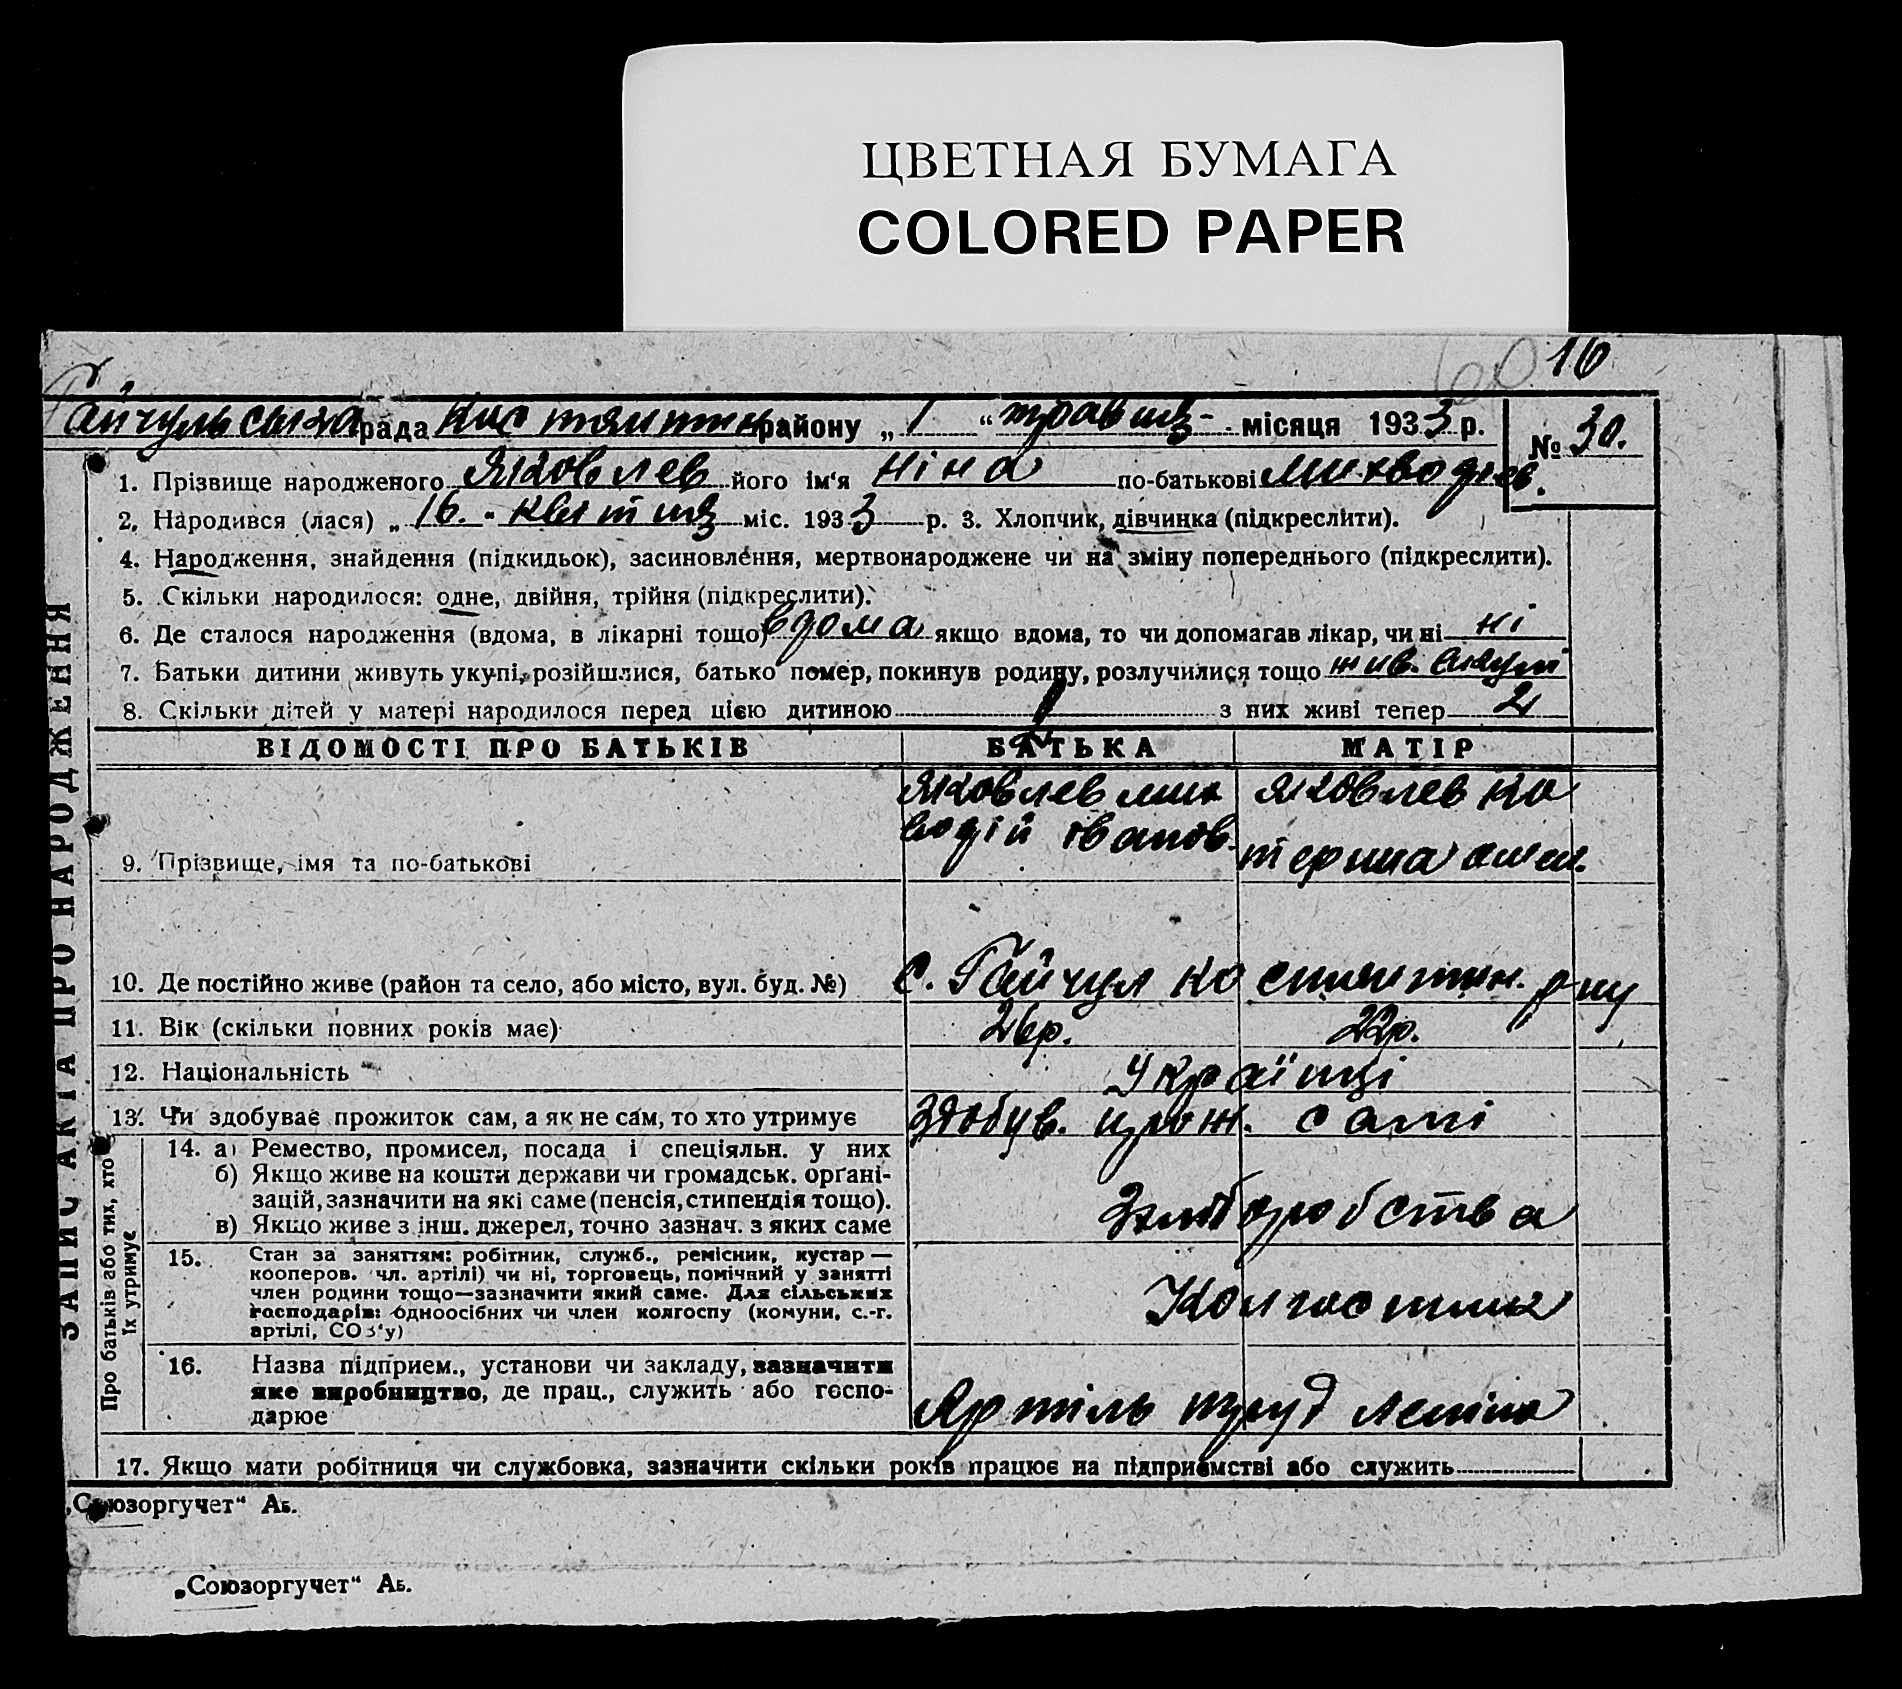 ЦВЕТНАЯ БУМАГА
COLORED PAPER
60 16
Гайчульська рада Костянтин району „ 1 “ травня місяця 1933 р.
№ 30.
1. Прізвище народженого Яковлев його ім'я Ніна по-батькові
2. Народився (лася) „ 16. - квітня міс. 1933 р. 3. Хлопчик, дівчинка (підкреслити).
4. Народження, знайдення (підкидьок), засиновлення, мертвонароджене чи на зміну попереднього (підкреслити).
5. Скільки народилося: одне, двійня, трійня (підкреслити).
6. Де сталося народження (вдома, в лікарні тощо) вдома якщо вдома, то чи допомагав лікар, чи ні ні
7. Батьки дитини живуть укупі, розійшлися, батько помер, покинув родину, розлучилися тощо жив.
8. Скільки дітей у матері народилося перед цією дитиною 1 з них живі тепер 2
ВІДОМОСТІ ПРО БАТЬКІВ БАТЬКА МАТІР
Яковлев Яковлев Ка
Іванов. терина
9. Прізвище, імя та по-батькові
10. Де постійно живе (район та село, або місто, вул. буд. №) с. Гайчул Костянтин. р-ну
11. Вік (скільки повних років має) 26р. 22р.
12. Національність Українці
13. Чи здобуває прожиток сам, а як не сам, то хто утримує Здобув. прож. самі
14. а) Ремество, промисел, посада і спеціяльн. у них
б) Якщо живе на кошти держави чи громадськ. орґані-
зацій, зазначити на які саме (пенсія, стипендія тощо).
в) Якщо живе з інш. джерел, точно зазнач. з яких саме
Хліборобства
15. Стан за заняттям: робітник, служб., ремісник, кустар —
кооперов. чл. артілі) чи ні, торговець, помічний у занятті
член родини тощо—зазначити який саме. Для сільських
господарів: одноосібних чи член колгоспу (комуни, с.-г.
артілі, СОЗ'у)
Колгоспник
16. Назва підприєм., установи чи закладу, зазначити
яке виробництво, де прац., служить або госпо-
дарює
Артіль труд Леніна
17. Якщо мати робітниця чи службовка, зазначити скільки років працює на підприємстві або служить
ЗАПИС АКТА ПРО НАРОДЖЕННЯ
Про батьків або тих, хто
їх утримує
„Союзоргучет“ Аб.
„Союзоргучет“ Аб.